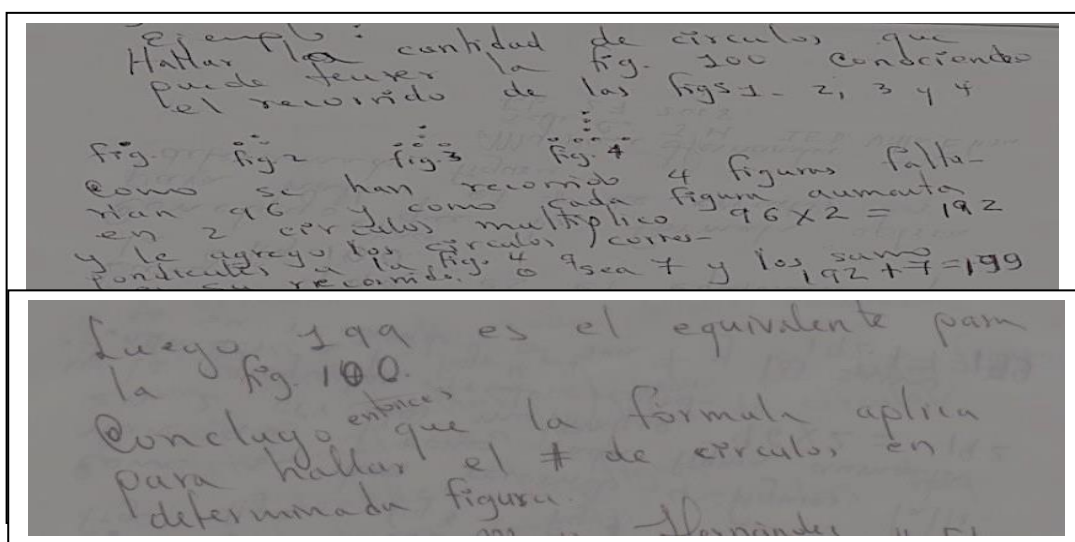 Ejemplo:
Hallar la cantidad de circulos que
puede tener la fig. 100 conociendo
el recorrido de las figs 1- 2, 3 y 4
fig. fig 2 fig. 3 fig. 4
Como se han recorrido 4 figuras falta-
rian 96 y como cada figura aumenta
en 2 circulos multiplico 96 x 2 = 192
y le agrego los circulos corres-
pondientes a la fig. 4 o sea 7 y los sumo
su recorrido. 192 + 7 = 199
Luego 199 es el equivalente para
la fig. 100.
Concluyo entonces que la formula aplica
para hallar el # de circulos en
determinada figura.
Hernández